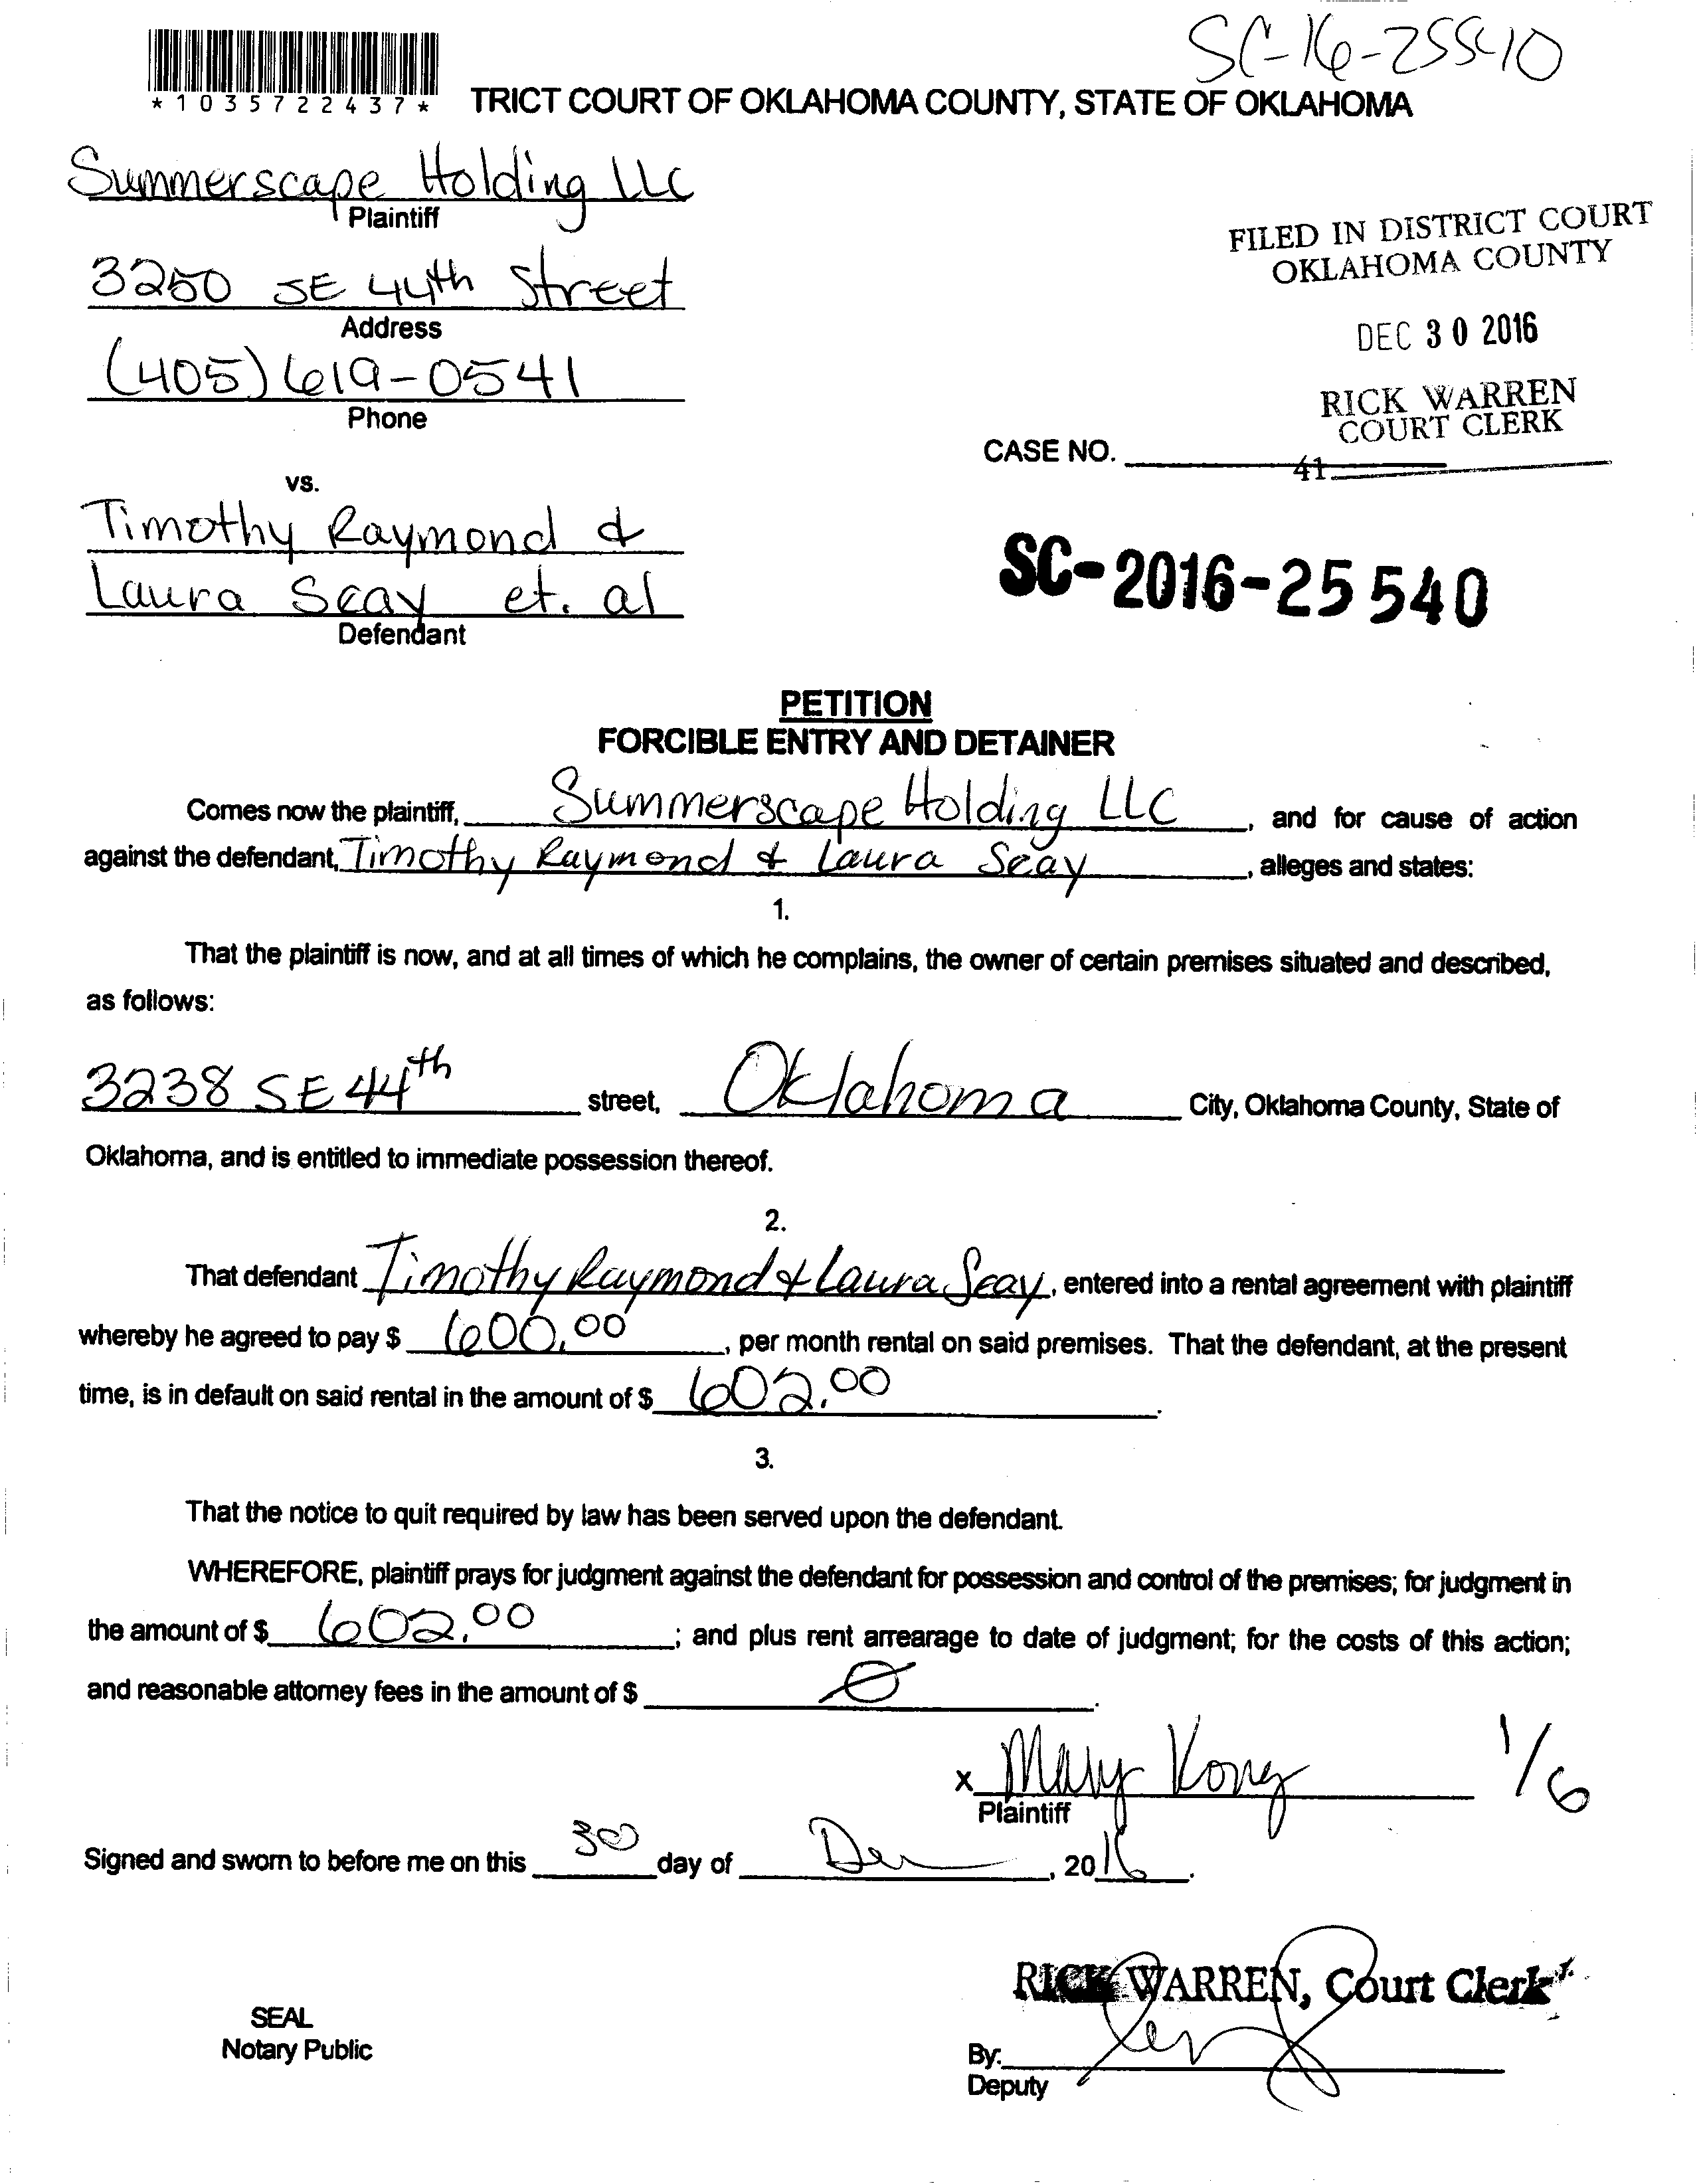 SC-16-25540
*1035722437*
TRICT COURT OF OKLAHOMA COUNTY, STATE OF OKLAHOMA
Summerscape Holding LLC
Plaintiff
3250 SE 44th Street
Address
(405) 619-0541
Phone
FILED IN DISTRICT COURT
OKLAHOMA COUNTY
DEC 30 2016
RICK WARREN
COURT CLERK
CASE NO.
41
vs.
Timothy Raymond &
Laura Seay et. al
Defendant
SC-2016-25540
PETITION
FORCIBLE ENTRY AND DETAINER
Comes now the plaintiff, Summerscape Holding LLC, and for cause of action
against the defendant, Timothy Raymond & Laura Seay, alleges and states:
1.
That the plaintiff is now, and at all times of which he complains, the owner of certain premises situated and described,
as follows:
3238 SE 44th street, Oklahoma City, Oklahoma County, State of
Oklahoma, and is entitled to immediate possession thereof.
2.
That defendant Timothy Raymond & Laura Seay, entered into a rental agreement with plaintiff
whereby he agreed to pay $ 600.00, per month rental on said premises. That the defendant, at the present
time, is in default on said rental in the amount of $ 602.00.
3.
That the notice to quit required by law has been served upon the defendant.
WHEREFORE, plaintiff prays for judgment against the defendant for possession and control of the premises; for judgment in
the amount of $ 602.00; and plus rent arrearage to date of judgment; for the costs of this action;
and reasonable attorney fees in the amount of $ Ø.
x Mary Kong 1/6
Plaintiff
Signed and sworn to before me on this 30 day of Dec, 2016.
RICK WARREN, Court Clerk
SEAL
Notary Public
By:
Deputy